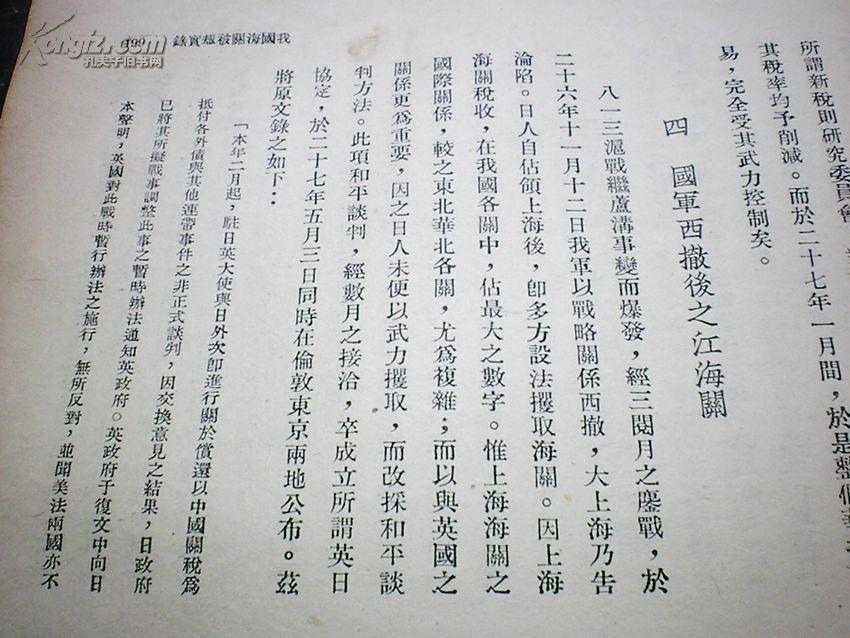 所謂新稅則硏究委員會
其稅率均予削減。而於二十七年一月間，於是整個華
易，完全受其武力控制矣。
四　國軍西撤後之江海關
八一三滬戰繼蘆溝事變而爆發，經三閱月之鏖戰，於
二十六年十一月十二日我軍以戰略關係西撤，大上海乃告
淪陷。日人自佔領上海後，卽多方設法攫取海關。因上海
海關稅收，在我國各關中，佔最大之數字。惟上海海關之
國際關係，較之東北華北各關，尤爲複雜；而以與英國之
關係更爲重要，因之日人未便以武力攫取，而改採和平談
判方法。此項和平談判，經數月之接洽，卒成立所謂英日
協定，於二十七年五月三日同時在倫敦東京兩地公布。茲
將原文錄之如下：
「本年二月起，駐日英大使與日外次卽進行關於償還以中國關稅爲
抵付各外債與其他連帶事件之非正式談判，因交換意見之結果，日政府
已將其所擬戰事調整此事之暫時辦法通知英政府。英政府于復文中向日
本聲明，英國對此戰時暫行辦法之施行，無所反對，並聞美法兩國亦不
我國海關被刼實錄　199
Kongfz.com
孔夫子旧书网